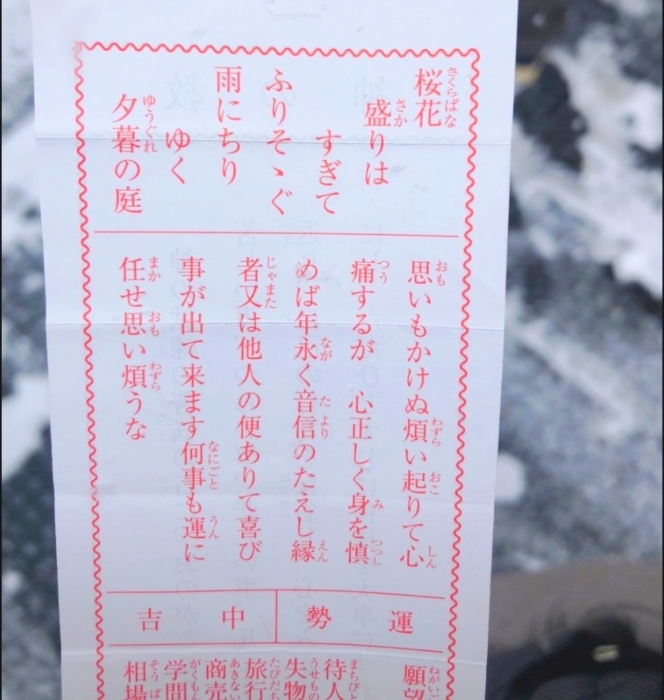 桜花
盛りは
すぎて
ふりそゝぐ
雨にちり
ゆく
夕暮の庭
思いもかけぬ煩い起りて心
痛するが 心正しく身を慎
めば年永く音信のたえし縁
者又は他人の便ありて喜び
事が出て来ます何事も運に
任せ思い煩うな
運勢 中吉
願望
待人
失物
旅行
商売
学問
相場